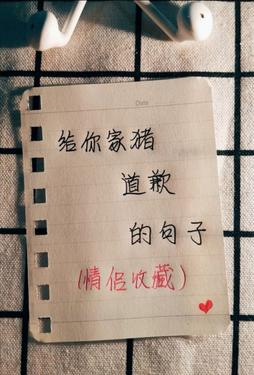 Date
给你家猪
道歉
的句子
(情侣收藏)